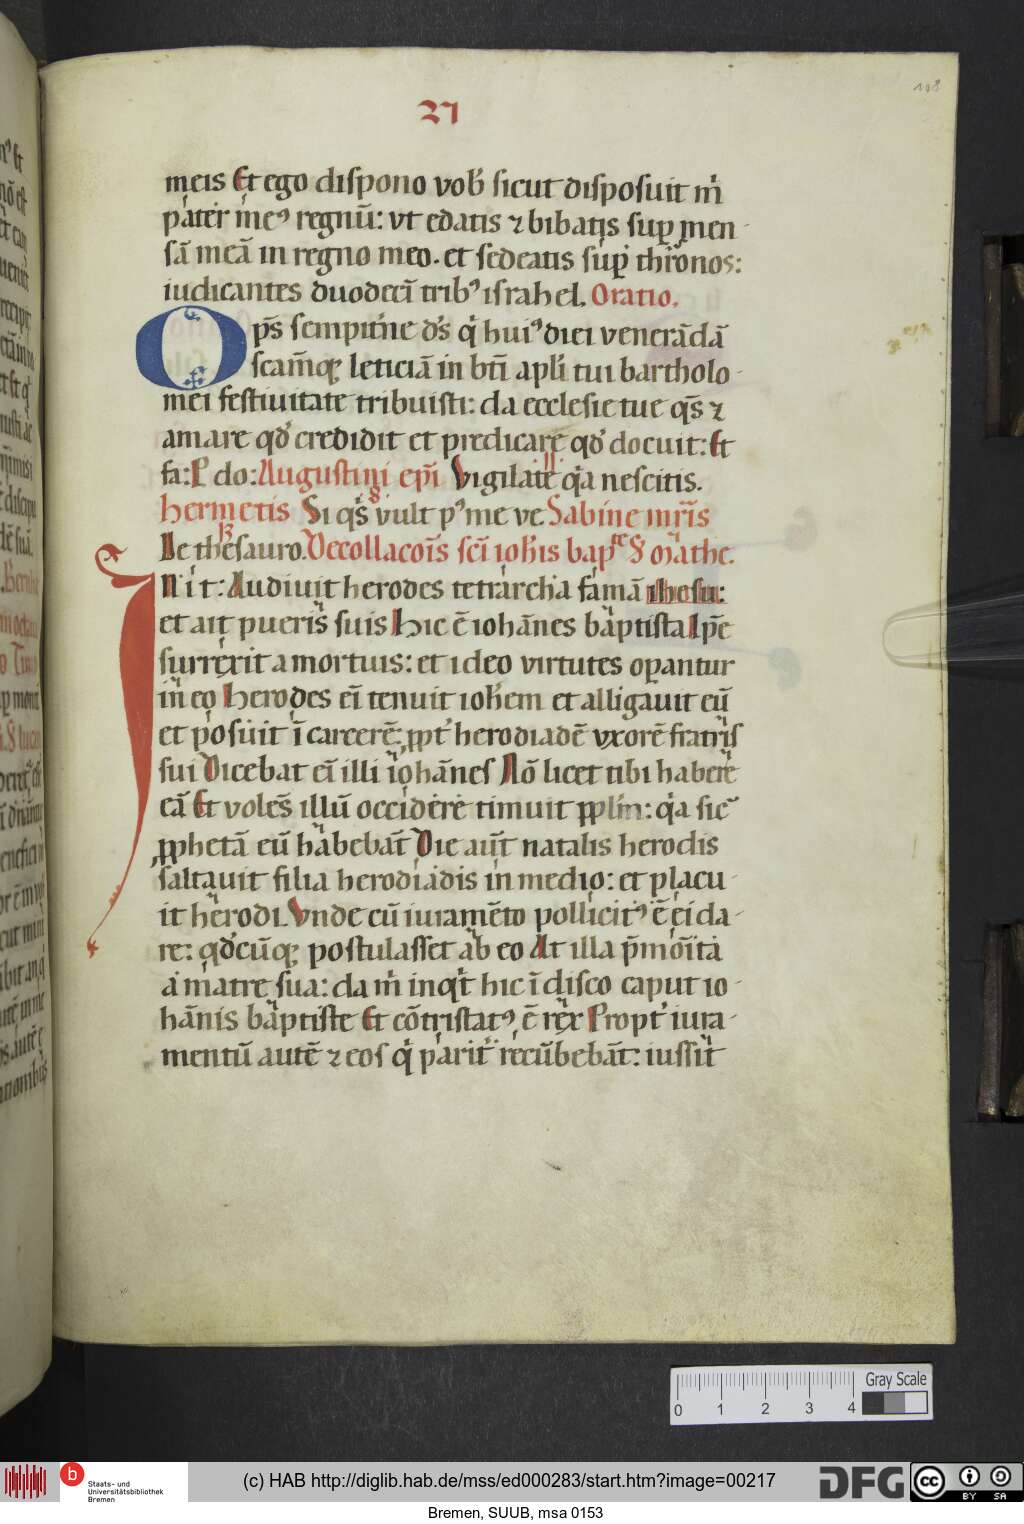 108
27
meis Et ego dispono vob̄ sicut disposuit m̄
pater meꝰ regnū: vt edatis ⁊ bibatis suꝑ men-
sā meā in regno meo. et sedeatis suꝑ thronos:
iudicantes duodecī tribꝰ israhel. Oratio.
Oр̄s sempit̄ne d̄s q̇ huiꝰ diei venerādā
scam̄qꝫ leticiā in bt̄i apl̄i tui bartholo-
mei festiuitate tribuisti: da ecclesie tue q̄s ⁊
amare qd̓ credidit et predicare qd̓ docuit: Et
fa: P do: Augustini ep̄i Vigilate q̇a nescitis.
hermetis Si q̇s vult pꝰ me ve. Sabine mr̄is
Ie thesauro. Decollacoīs sc̄i ioh̄is bap S mathe.
IN i t: Audiuit herodes tetrarcha famā ihesu:
et ait pueris suis Hic ē iohānes baptista Ip̄e
surrexit a mortuis: et ideo virtutes oꝑantur
in eo Herodes eī tenuit ioh̄em et alligauit eū
et posuit ī carcerē ꝓpt̓ herodiadē vxorē fratris
sui Dicebat eī illi iohānes Nō licet tibi habere
eā Et voles̄ illū occidere timuit ppl̄m: q̇a sic̄
ꝓphetā eū habebāt Die aūt natalis herodis
saltauit filia herodiadis in medio: et placu-
it herodi. Vnde cū iuramēto pollicitꝰ ē ei da-
re: qd̓cūqꝫ postulasset ab eo At illa p̄monita
a matre sua: da m̄ inqt̄ hic ī disco caput io-
hānis baptiste Et cōtristatꝰ ē rex Propt̓ iura-
mentū autē ⁊ eos q̇ parit̓ recūbebāt: iussit
Gray Scale
0 1 2 3 4
b
Staats- und
Universitätsbibliothek
Bremen
(c) HAB http://diglib.hab.de/mss/ed000283/start.htm?image=00217
DFG
cc BY SA
Bremen, SUUB, msa 0153